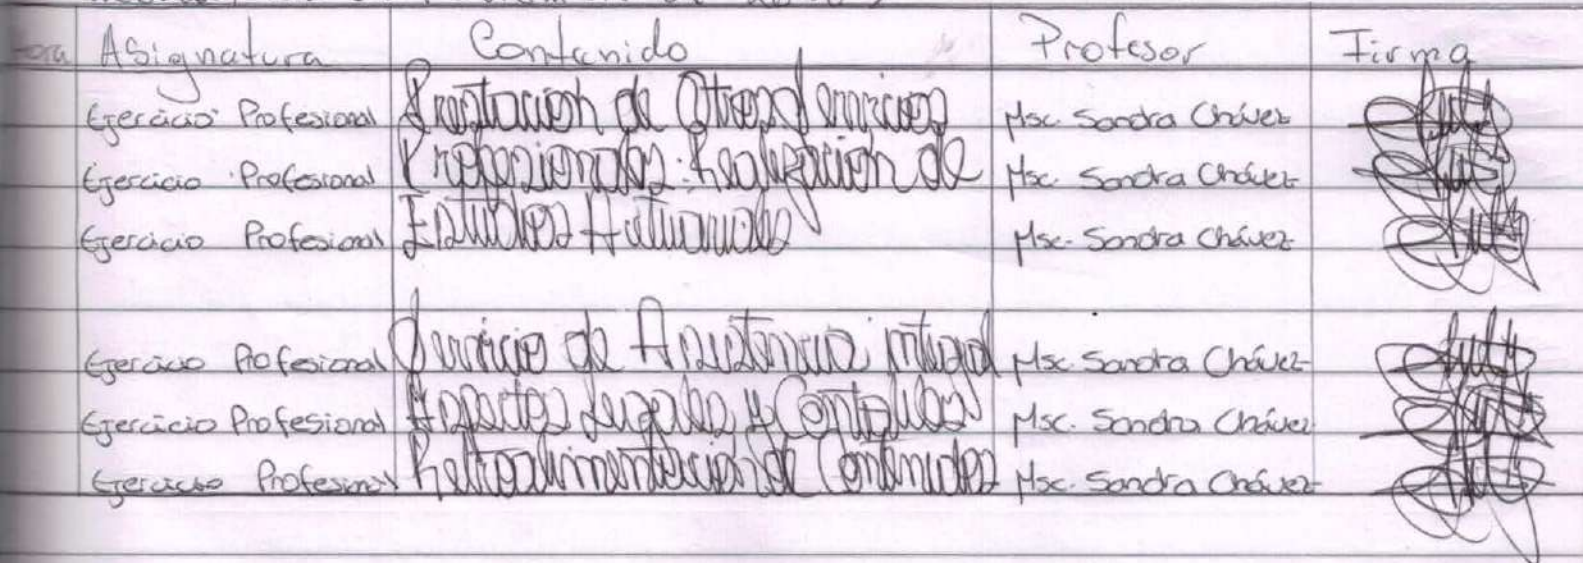 Hora Asignatura Contenido Profesor Firma
Ejercicio Profesional Prestación de Otros Servicios Msc. Sandra Chávez
Ejercicio Profesional Profesionales: Realización de Msc. Sandra Chávez
Ejercicio Profesional Estudios Actuariales Msc. Sandra Chávez
Ejercicio Profesional Servicio de Asistencia integral Msc. Sandra Chávez
Ejercicio Profesional Aspectos Legales y Contables Msc. Sandra Chávez
Ejercicio Profesional Retroalimentación de Contenidos Msc. Sandra Chávez